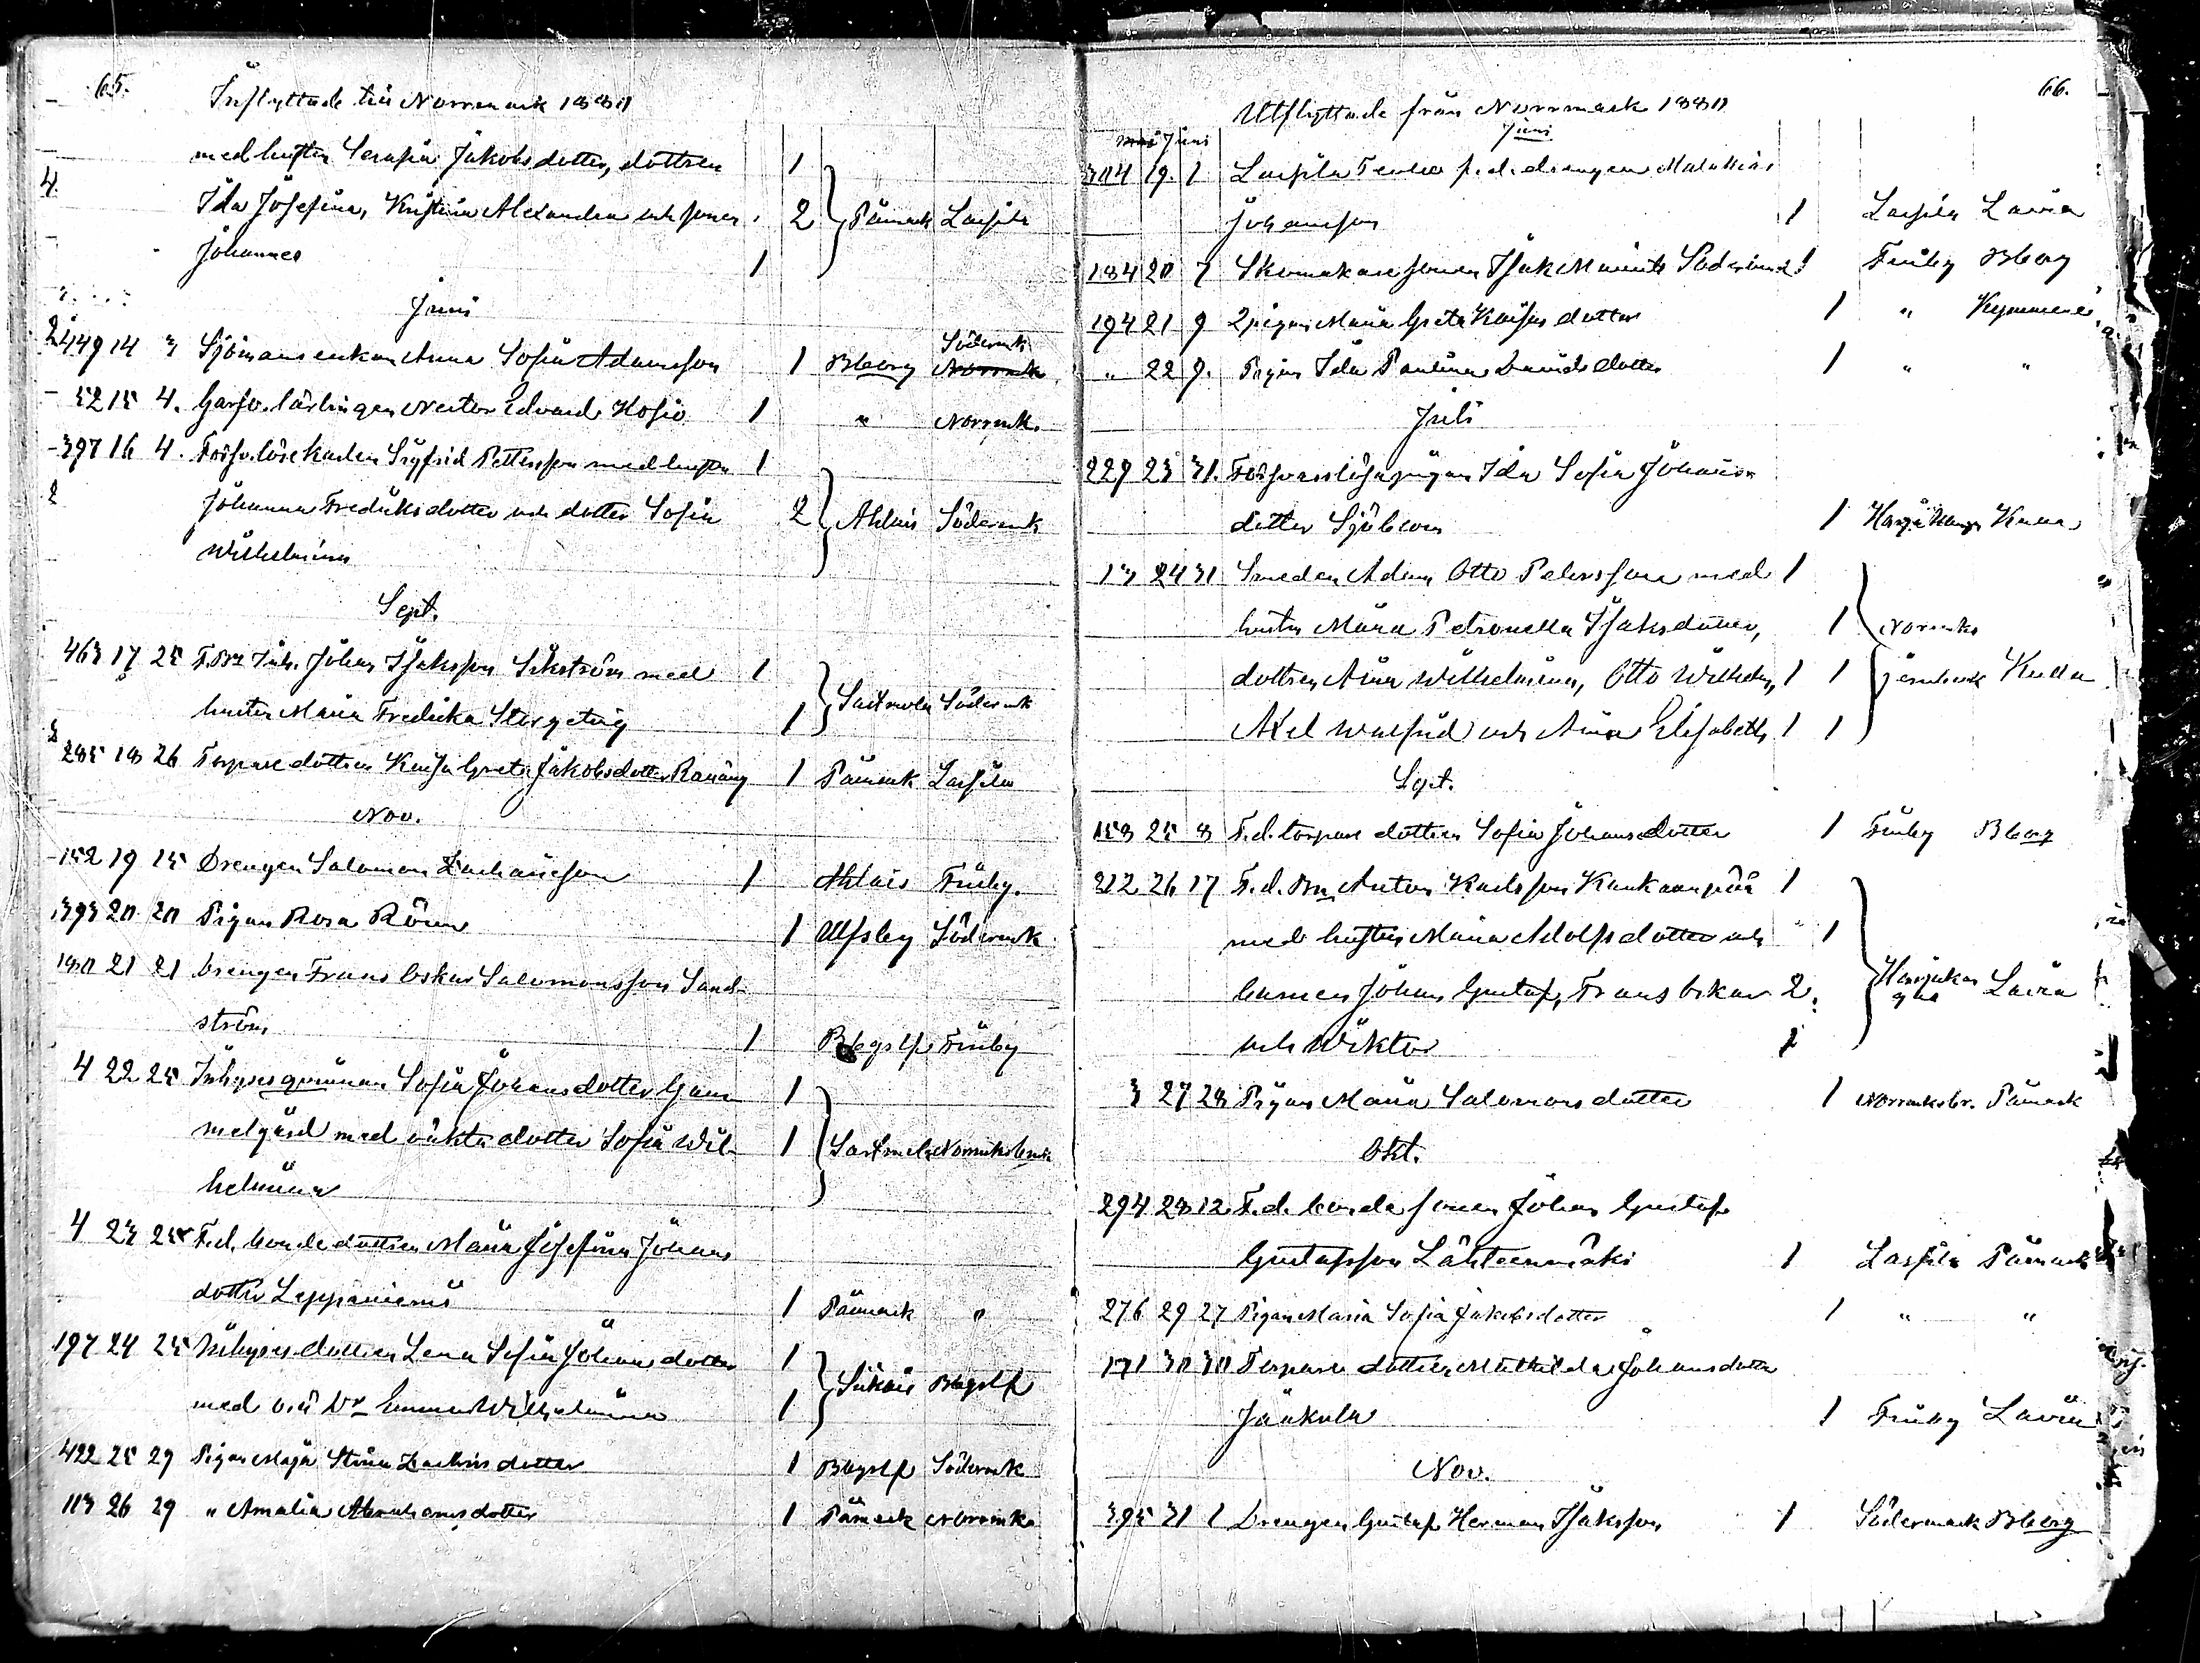 65.
Inflyttade till Norrmark 1880
med hustru Serafia Jakobsdotter, dottren 1
4. Ida Josefina, Kristina Alexandra och sonen 2 Påmark Lassila
Johannes 1
Juni
2 449 14 3 Sjömansenkan Anna Sofia Adamsson 1 Bborg Södermk Norrmk
52 15 4. Garfv. lärlingen Nestor Edvard Kosio 1 " Norrmk.
397 16 4. Försv.löse karlen Sigfrid Pettersson med hustru 1
2 Johanna Fredriksdotter och dotter Sofia 2 Ahlais Södermk
Wilhelmina
Sept.
463 17 25 Johan Isaksson Sikström med 1
hustru Maria Fredrika 1 Sastmola Södermk
2
285 18 26 Torpare dottren Kaisa Greta Jakobsdotter 1 Påmark Lassila
Nov.
152 19 15 Drengen Salomon Zachariesson 1 Ahlais Finby.
393 20 20 Pigan Rosa Rönn 1 Ulfsby Södermk
180 21 21 Drengen Frans Oskar Salomonsson Sand-
ström 1 Bbgslf Finby
4 22 25 Inhyses qvinnan Sofia Johansdotter Gam 1
melgård med oäkta dotter Sofia Wil- 1 Sastmola Norrmksbruk
helmina
4 23 25 F.d. bonde dottren Maria Josefina Johans
dotter Leppäniemi 1 Påmark "
197 24 25 Inhyses dottren Lena Sofia Johansdotter 1
med o.ä Dr Emma Wilhelmina 1 Siikais Bbgslf
422 25 29 Pigan Maja Stina Zachrisdotter 1 Bbgslf Södermk
113 26 29 " Amalia Abrahamsdotter 1 Påmark Norrmk
66.
Utflyttade från Norrmark 1880
Maj Juni Juni
304 19. 1 Lassila f.d. drengen Malakias
Johansson 1 Lassila Lavia
184 20 7 Skomakare sonen Isak Mauritz Söderlund 1 Finby Bborg
194 21 9 Pigan Maria Greta Kaisasdotter 1 " Kymmene
" 22 9. Pigan Ida Paulina Davidsdotter 1 " "
Juli
229 23 31. Försvarslösa pigan Ida Sofia Johans
dotter Sjöblom 1 Harjakangas
13 24 31 Smeden Adam Otto Petersson med 1
hustru Maria Petronella Isaksdotter, 1 Norrmks
dottren Aina Wilhelmina, Otto Wilhelm, 1 1
Axel Walfrid och Aina Elisabeth 1 1
Sept.
158 25 8 F.d. torpare dottren Sofia Johansdotter 1 Finby Bborg
212 26 17 F.d. Bn Anton Karlsson Kankaanpää 1
med hustru Maria Adolfsdotter och 1
barnen Johan Gustaf, Frans Oskar 2 Harjakangas Lavia
och Wiktor 1
3 27 28 Pigan Maria Salomonsdotter 1 Norrmksbr. Påmark
Okt.
294 28 12 F.d. bonde sonen Johan Gustaf
Gustafsson Lähteenmäki 1 Lassila Påmark
276 29 27 Pigan Maria Sofia Jakobsdotter 1 " "
171 30 30 Torpare dottren Mathilda Johansdotter
Jaakola 1 Finby Lavia
Nov.
395 31 1 Drengen Gustaf Herman Isaksson 1 Södermark Bborg